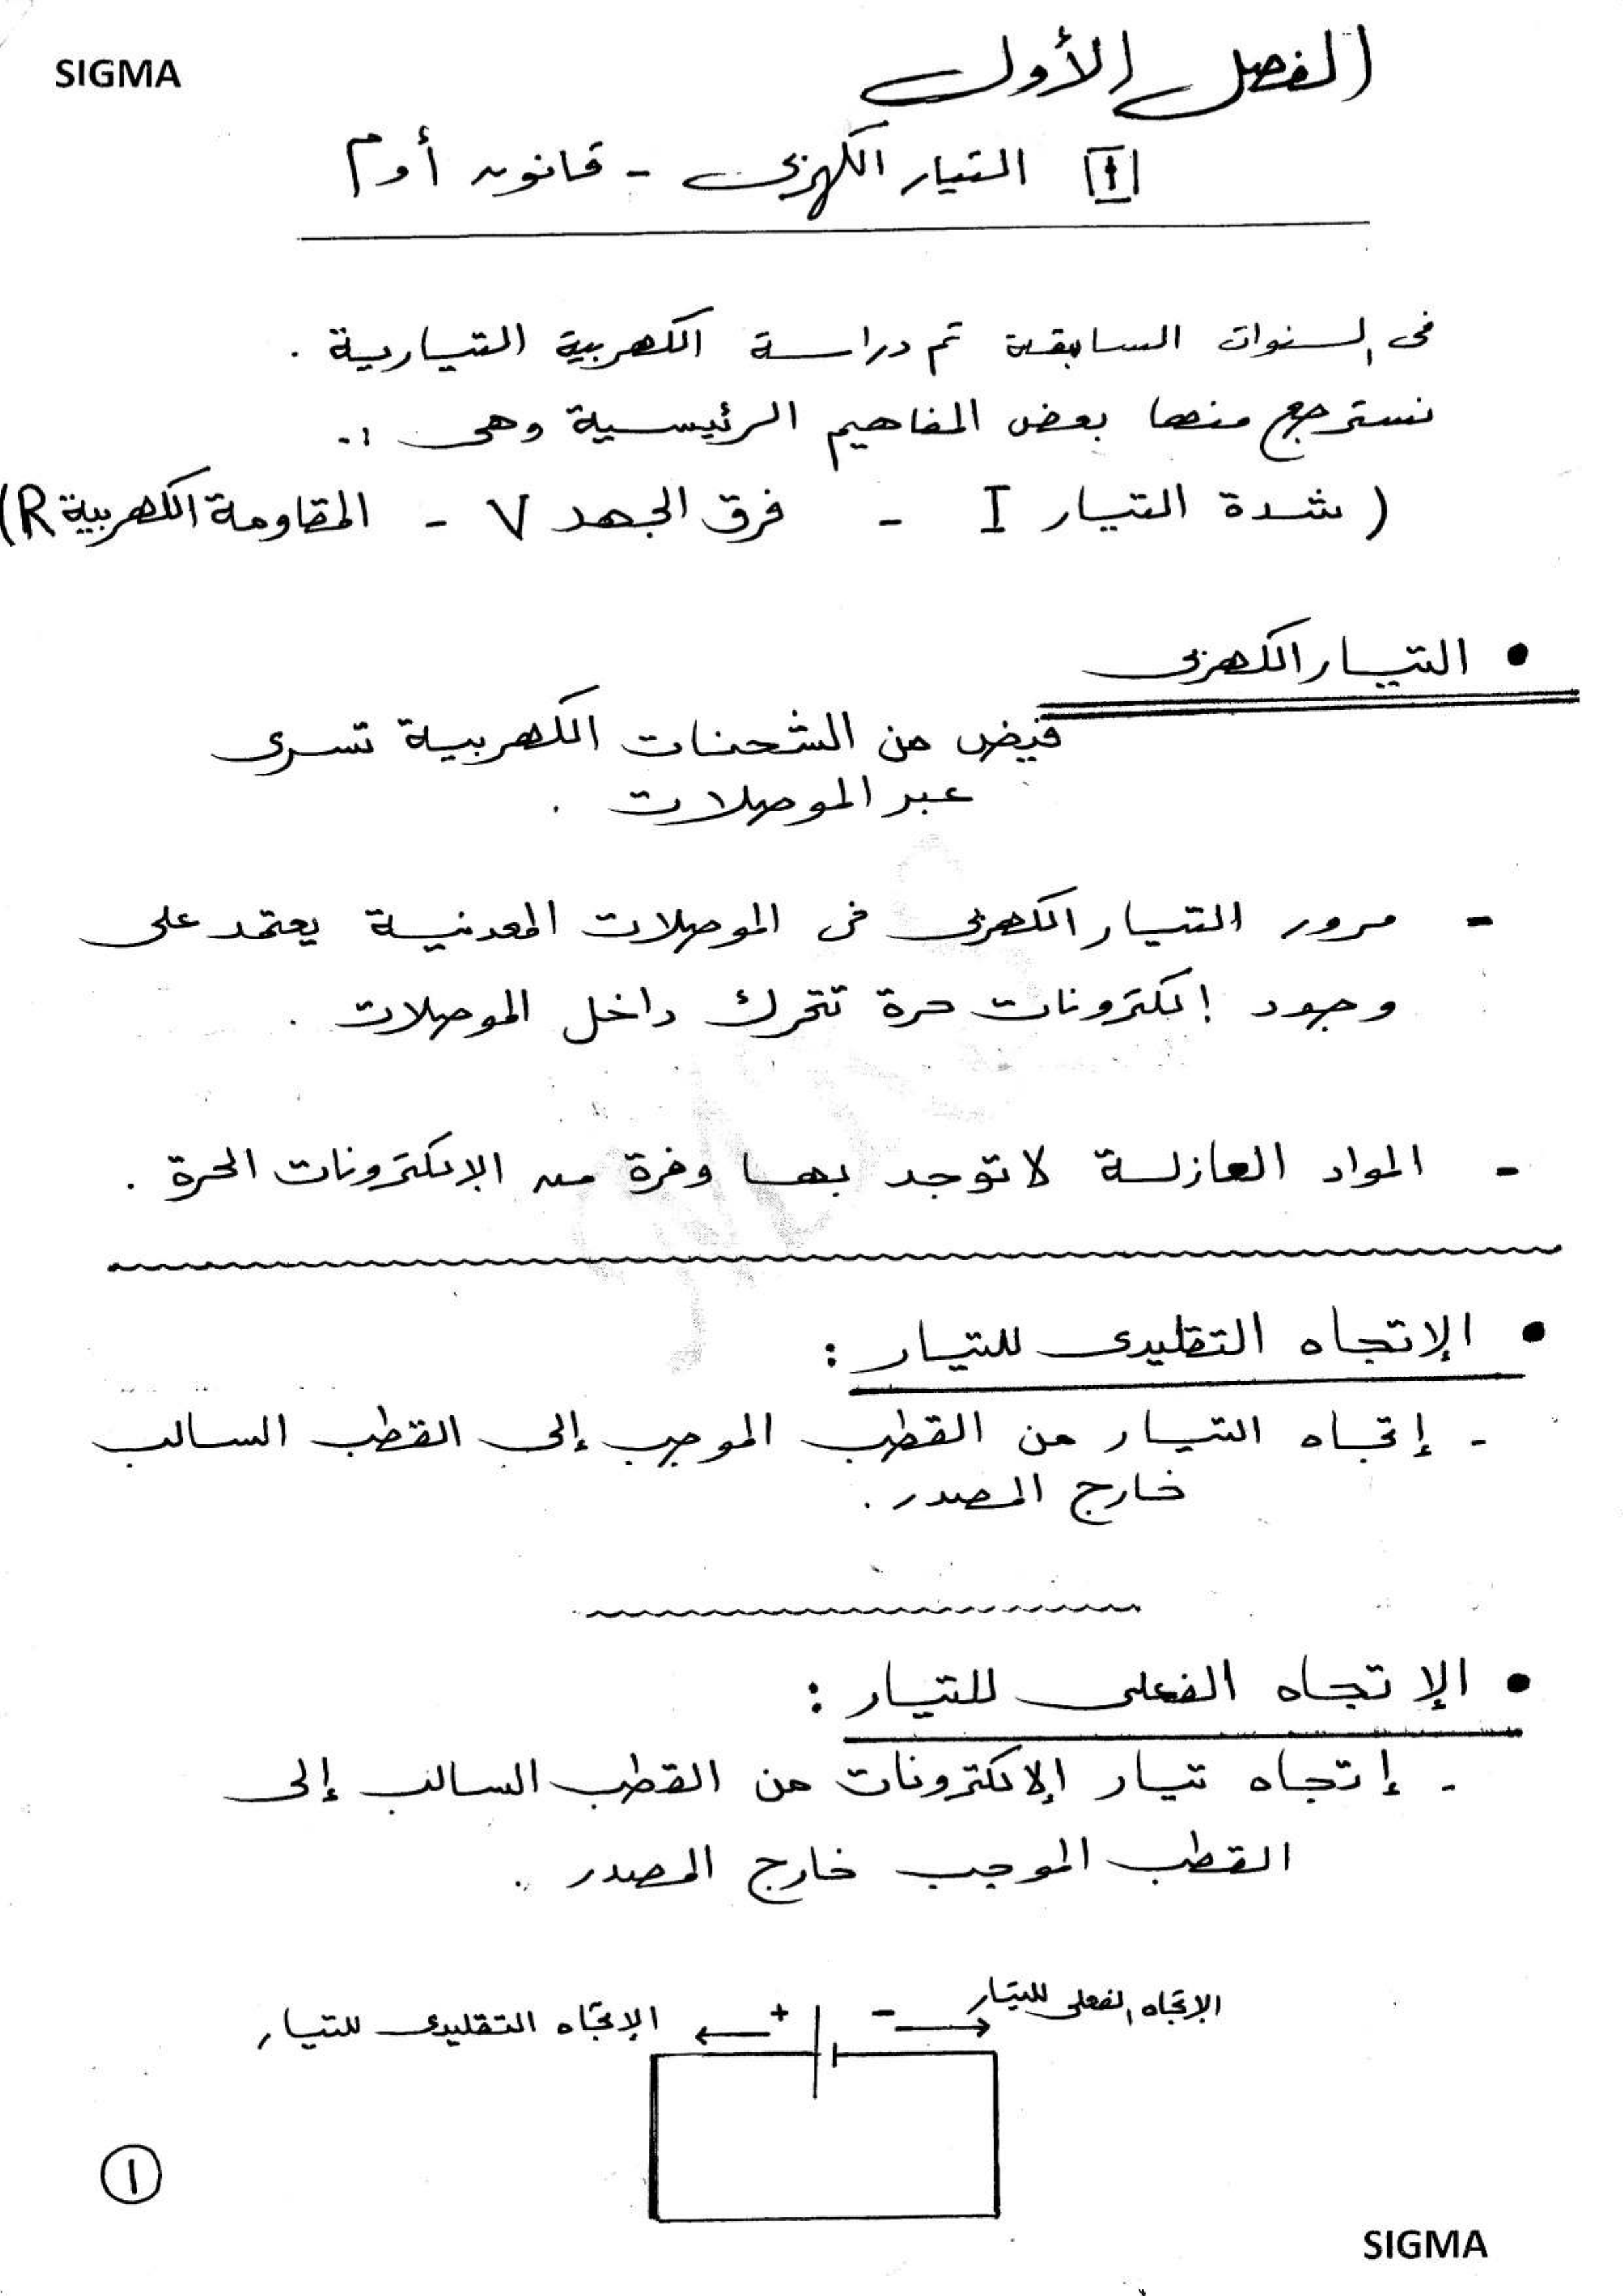 SIGMA
الفصل الأول
١ التيار الكهربى - قانون أوم
فى السنوات السابقة تم دراسة الكهربية التيارية .
نسترجع منها بعض المفاهيم الرئيسية وهى :-
( شدة التيار I - فرق الجهد V - المقاومة الكهربية R)
• التيار الكهربى
فيض من الشحنات الكهربية تسرى
عبر الموصلات .
- مرور التيار الكهربى فى الموصلات المعدنية يعتمد على
وجود إلكترونات حرة تتحرك داخل الموصلات .
- المواد العازلة لا توجد بها وفرة من الإلكترونات الحرة .
• الإتجاه التقليدى للتيار :
- إتجاه التيار من القطب الموجب إلى القطب السالب
خارج المصدر .
• الإتجاه الفعلى للتيار :
- إتجاه تيار الإلكترونات من القطب السالب إلى
القطب الموجب خارج المصدر .
الإتجاه الفعلى للتيار
- +
الإتجاه التقليدى للتيار
١
SIGMA